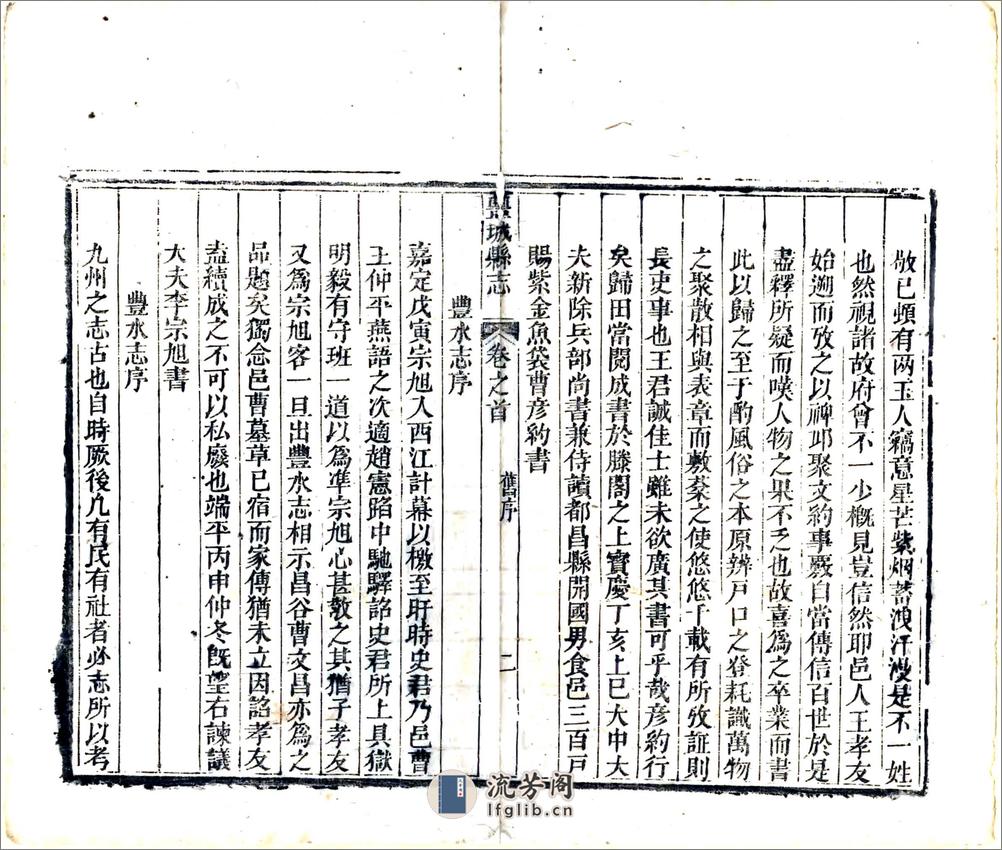 敬已頓有两玉人竊意星芒紫烟蓄洩汗漫是不一姓
也然視諸故府曾不一少槪見豈信然耶邑人王孝友
始遡而攷之以稗邛聚文約事覈自當傳信百世於是
盡釋所疑而嘆人物之果不乏也故喜爲之卒業而書
此以歸之至于酌風俗之本原辨戸口之登耗識萬物
之聚散相與表章而敷棻之使悠悠千載有所攷証則
長吏事也王君誠佳士雖未欲廣其書可乎哉彦約行
矣歸田當閱成書於滕閣之上寳慶丁亥上巳大中大
夫新除兵部尚書兼侍讀都昌縣開國男食邑三百戸
賜紫金魚袋曹彦約書
豐水志序
豐城縣志 卷之首 舊序 二
嘉定戊寅宗旭入西江計幕以檄至盱時史君乃邑曹
王仲平燕語之次適趙憲路中馳驛諮史君所上具獄
明毅有守班一道以爲凖宗旭心甚敬之其猶子孝友
又爲宗旭客一旦出豐水志相示昌谷曹文昌亦爲之
品題矣獨念邑曹墓草已宿而家傳猶未立因諮孝友
盍續成之不可以私廢也端平丙申仲冬旣望右諫議
大夫李宗旭書
豐水志序
九州之志古也自時厥後凢有民有社者必志所以考
流芳阁
lfglib.cn